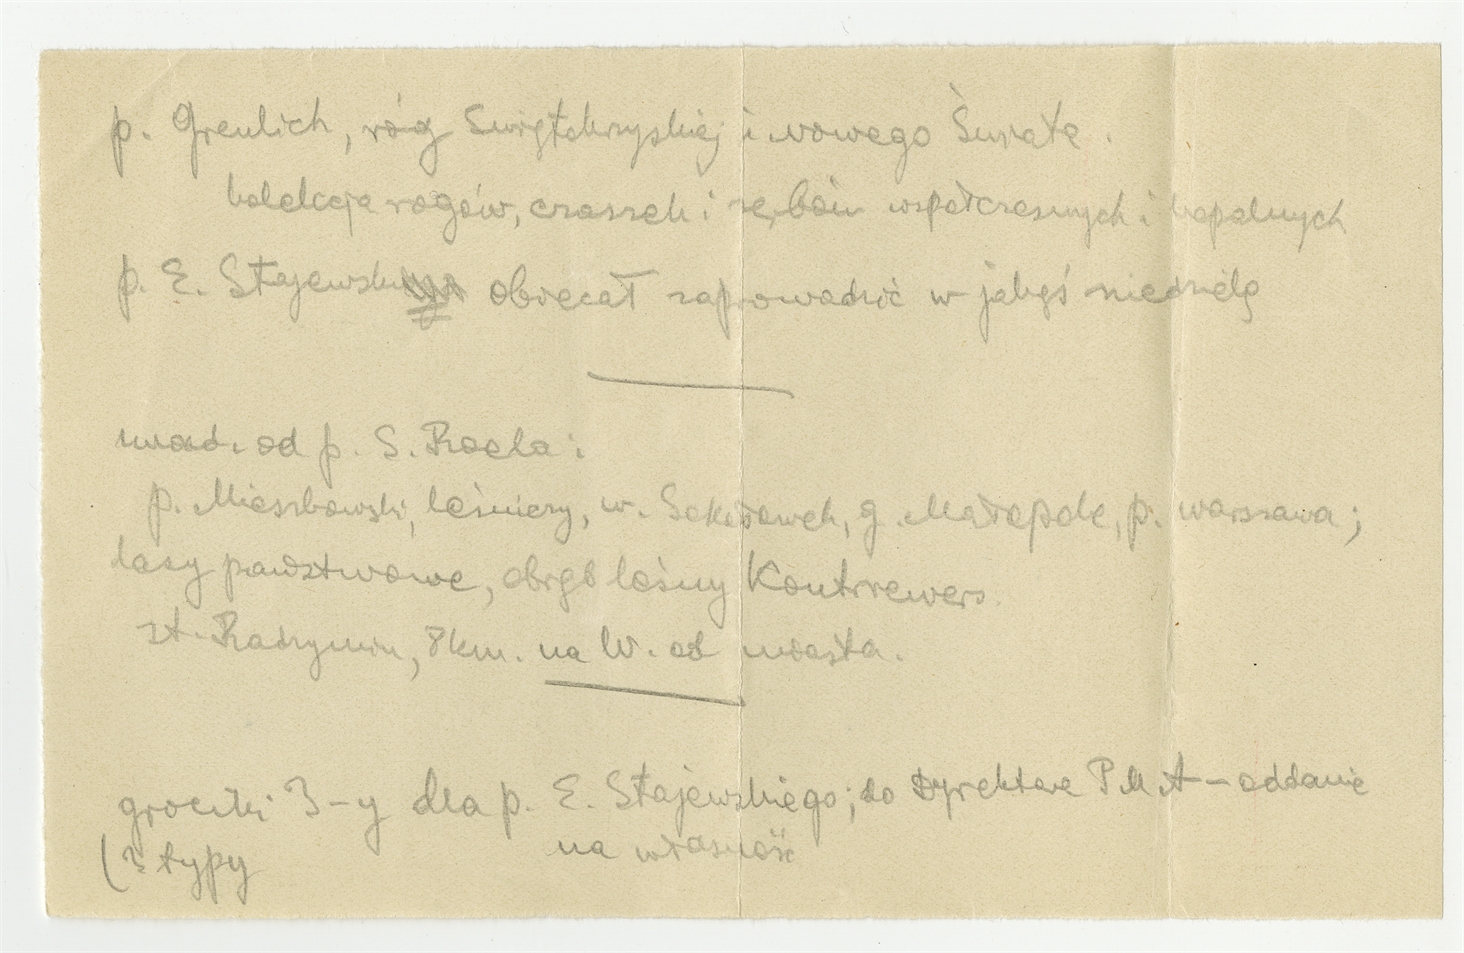 p. Greulich, róg Świętokrzyskiej i nowego Świata.
kolekcja rogów, czaszek i zębów współczesnych i kopalnych
p. E. Stajewski obiecał zaprowadzić w jakąś niedzielę
wiad. od p. S. Rocla:
p. Mieszkowski, leśniczy, w. g. Małopole, p. warszawa;
lasy państwowe, obręb leśny Kontrrewers.
st. Radzymin, 8 km. na W. od miasta.
grociki 3-y dla p. E. Stajewskiego; do Dyrektora PMA - oddanie
na własność
(3 typy